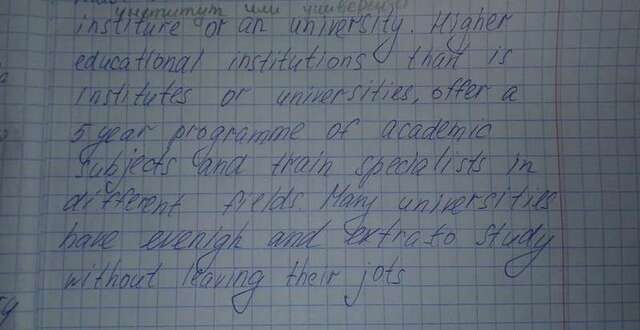 институт или университ
institure or an university. Higher
educational institutions that is
institutes or universities, offer a
5 year programme of academic
subjects and train specialists in
different fields. Many universities
have evenigh and extrato study
without leaving their jots